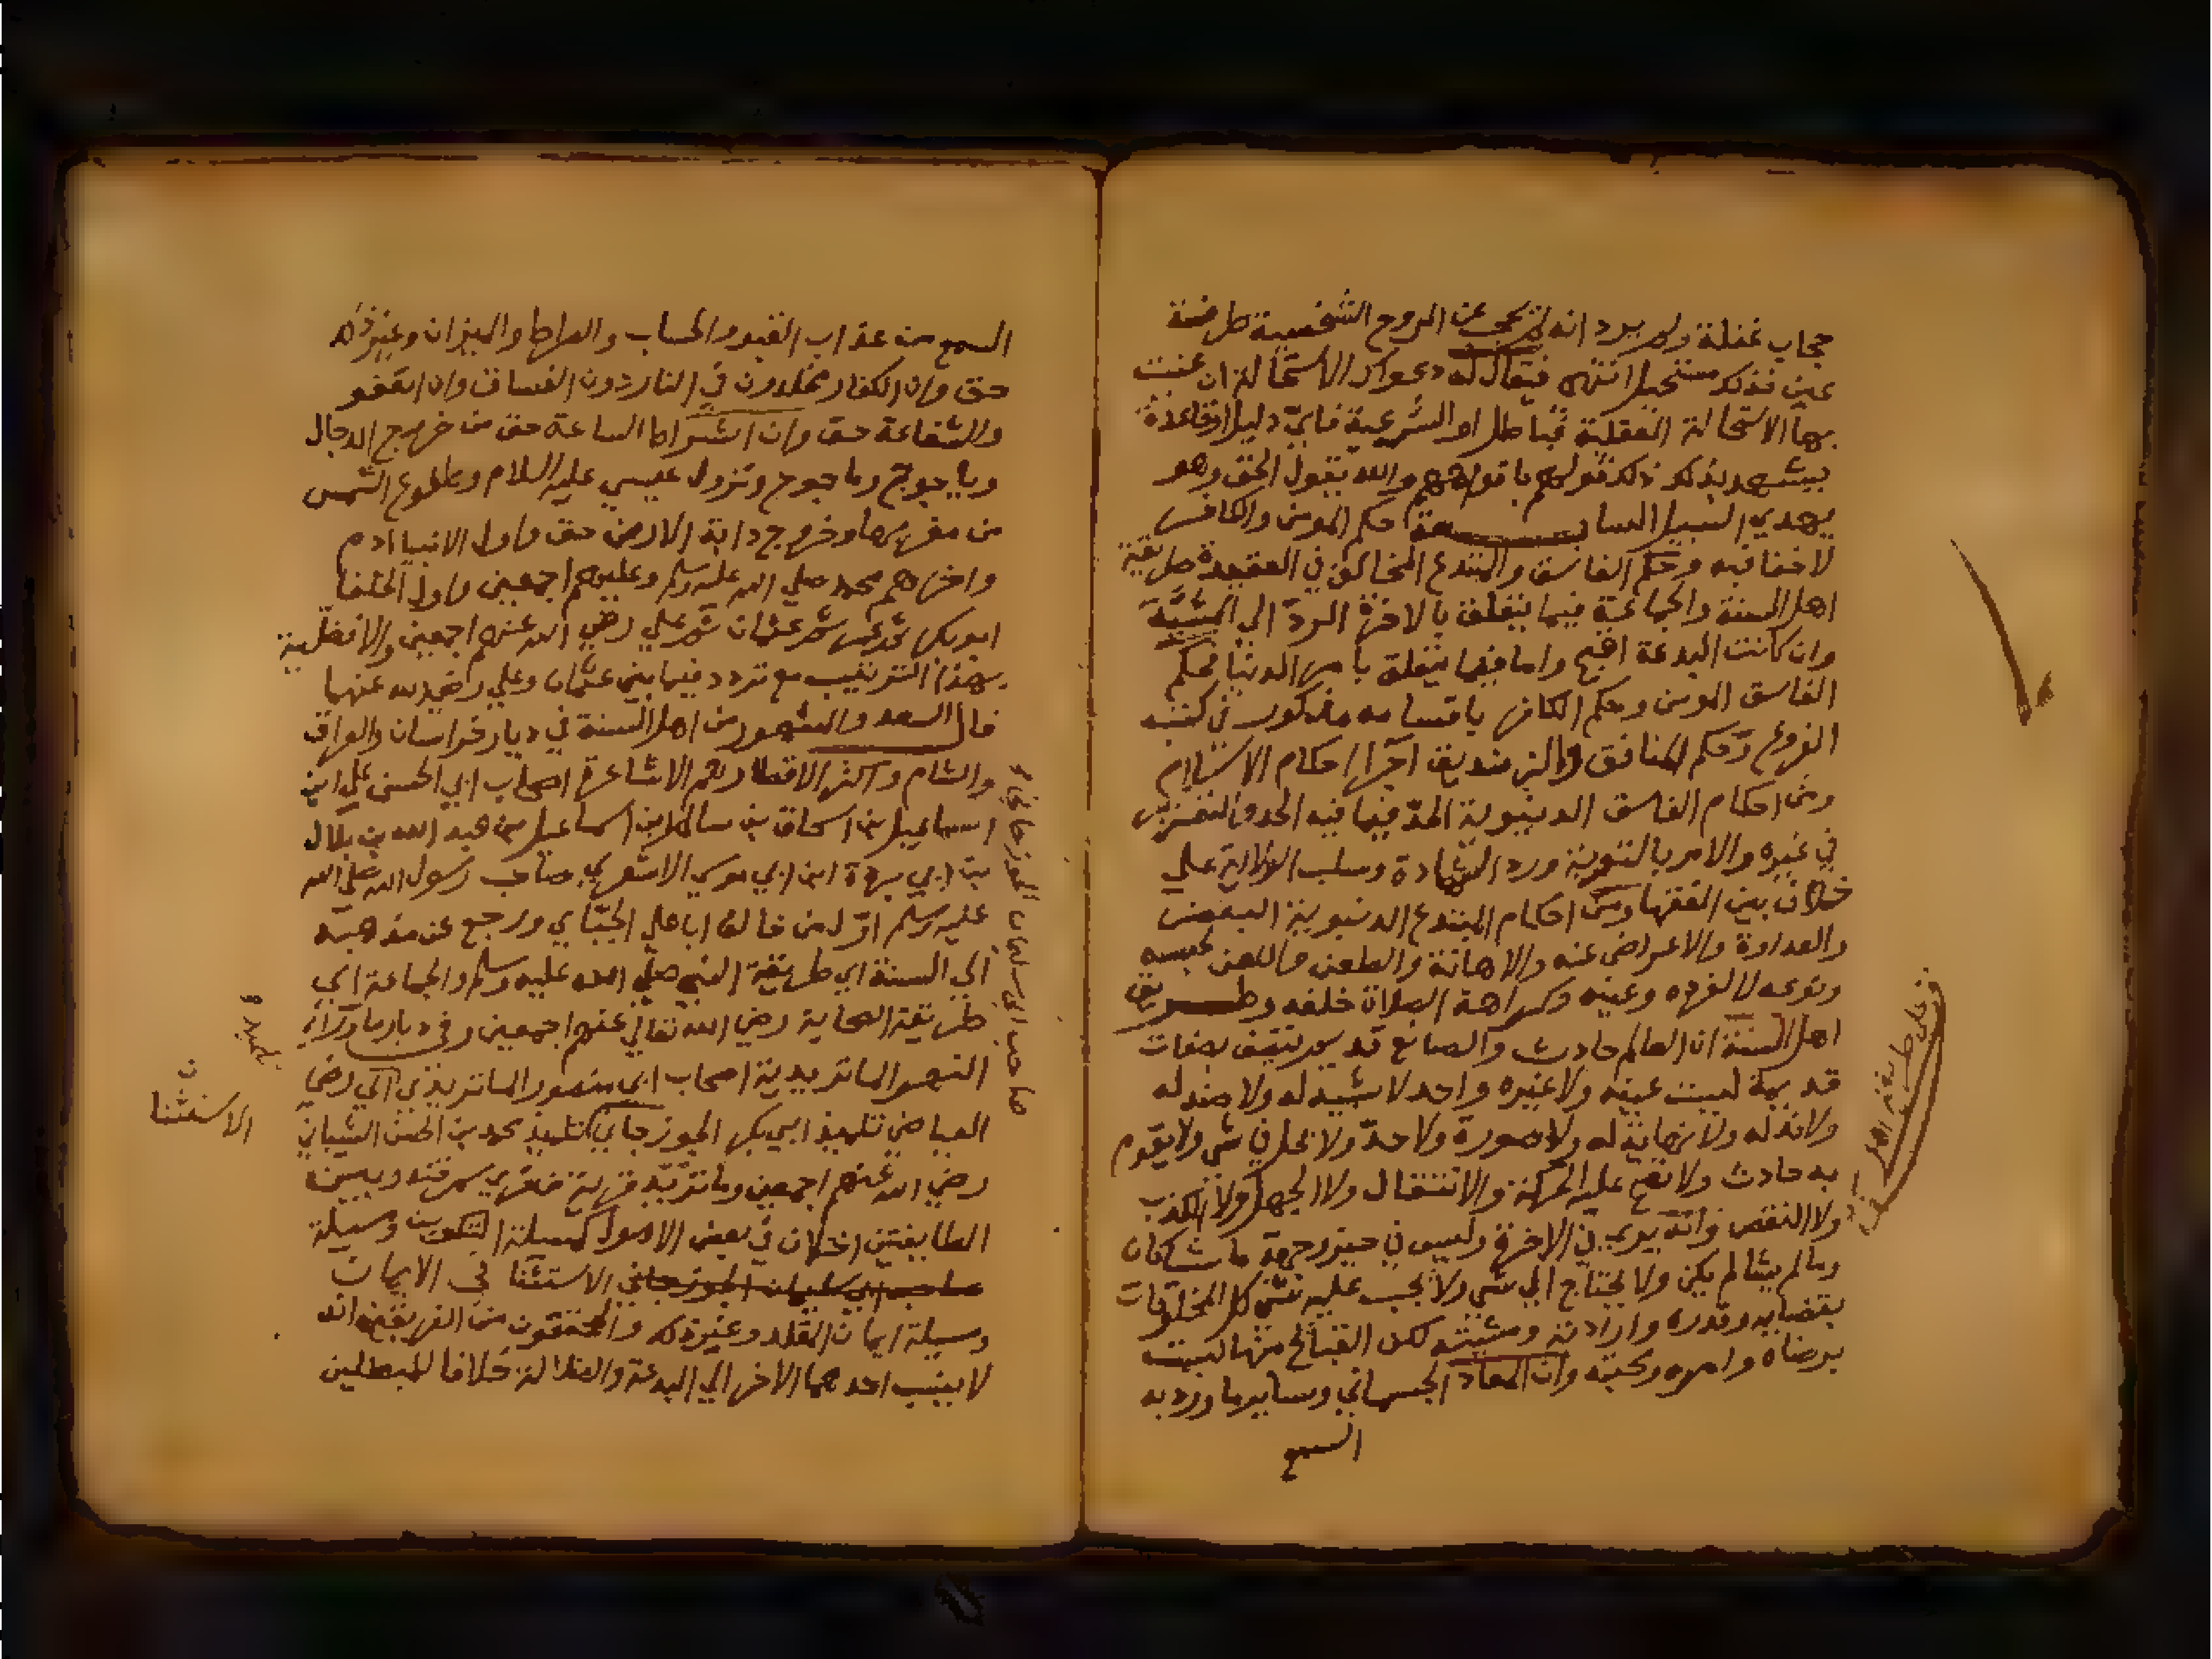 حجاب غفلة ولم يرد انه لم يحجب عن الروح الشخصية طرفة
عين فذلك مستحيل انتهى فيقال له دعواك الاستحالة ان عنيت
بها الاستحالة العقلية فباطل او الشرعية فاي دليل او قاعدة
يشهد بذلك ذلك قولهم بافواههم والله يقول الحق وهو
يهدي السبيل السابعة حكم المومن والكافر
لا خفا فيه وحكم الفاسق والمبتدع المخالف في العقيدة طريقة
اهل السنة والجماعة فيما يتعلق بالاخرة الرد الى المشية
وان كانت البدعة اقبح واما فيما يتعلق بامر الدنيا فحكم
الفاسق المومن وحكم الكافر باقسامه مذكور في كتب
الفروع وحكم المنافق والزنديق اجرا احكام الاسلام
ومن احكام الفاسق الدنيوية الحد فيما فيه الحد والتعزير
في غيره والامر بالتوبة ورد الشهادة وسلب الولاية على
خلاف بين الفقها ومن احكام المبتدع الدنيوية البغض
والعداوة والاعراض عنه والاهانة والطعن واللعن لجنسه
ونوعه لا لفرده وعينه وكراهة الصلاة خلفه وطريق
اهل السنة ان العالم حادث والصانع قديم متصف بصفات
قديمة ليست عينه ولا غيره واحد لا شبيه له ولا ضد له
ولا ند له ولا نهاية له ولا صورة ولا حد ولا يحل في شي ولا يقوم
به حادث ولا تصح عليه الحركة والانتقال ولا الجهل ولا الكذب
ولا النقص وانه يرى في الاخرة وليس في حيز وجهة ما شا كان
وما لم يشا لم يكن ولا يحتاج الي شي ولا يجب عليه شي كل المخلوقات
بقضايه وقدره وارادته ومشيته لكن القبائح منها ليست
برضاه وامره ومحبته وان المعاد الجسماني وساير ما ورد به
السمع
السمع من عذاب القبر والحساب والصراط والميزان وغير ذلك
حق وان الكفار مخلدون في النار دون الفساق وان العفو
والشفاعة حق وان اشراط الساعة حق من خروج الدجال
وياجوج وماجوج ونزول عيسي عليه السلام وطلوع الشمس
من مغربها وخروج دابة الارض حق واول الانبيا ادم
واخرهم محمد صلي الله عليه وسلم وعليهم اجمعين واول الخلفا
ابو بكر ثم عمر ثم عثمان ثم علي رضي الله عنهم اجمعين والافضلية
بهذا الترتيب مع تردد فيما بين عثمان وعلي رضي الله عنهما
قال السعد والمشهور من اهل السنة في ديار خراسان والعراق
والشام واكثر الاقطار هم الاشاعرة اصحاب ابي الحسن علي ابن
اسماعيل بن اسحاق بن سالم ابن اسماعيل بن عبد الله بن بلال
بن ابي بردة ابن ابي موسي الاشعري صاحب رسول الله صلي الله
عليه وسلم اول من خالف ابا علي الجبائي ورجع عن مذهبه
الي السنة اي طريقة النبي صلي الله عليه وسلم والجماعة اي
طريقة الصحابة رضي الله تعالي عنهم اجمعين وفي ديار ما وراء
النهر الماتريدية اصحاب ابي منصور الماتريدي ابي نصر
العياضي تلميذ ابي بكر الجوزجاني تلميذ محمد بن الحسن الشيباني
رضي الله عنهم اجمعين وماتريد قرية من قري سمرقند وبين
الطايفتين اختلاف في بعض الاصول كمسيلة التكوين ومسيلة
صاحب ابي سليمان الجوزجاني الاستثنا في الايمان
ومسيلة ايمان المقلد وغير ذلك والمحققون من الفريقين انه
لا ينسب احدهما الاخر الي البدعة والضلالة خلافا للمبطلين
صاحب ابي سليمان الجوزجاني
ن
الاستثنا